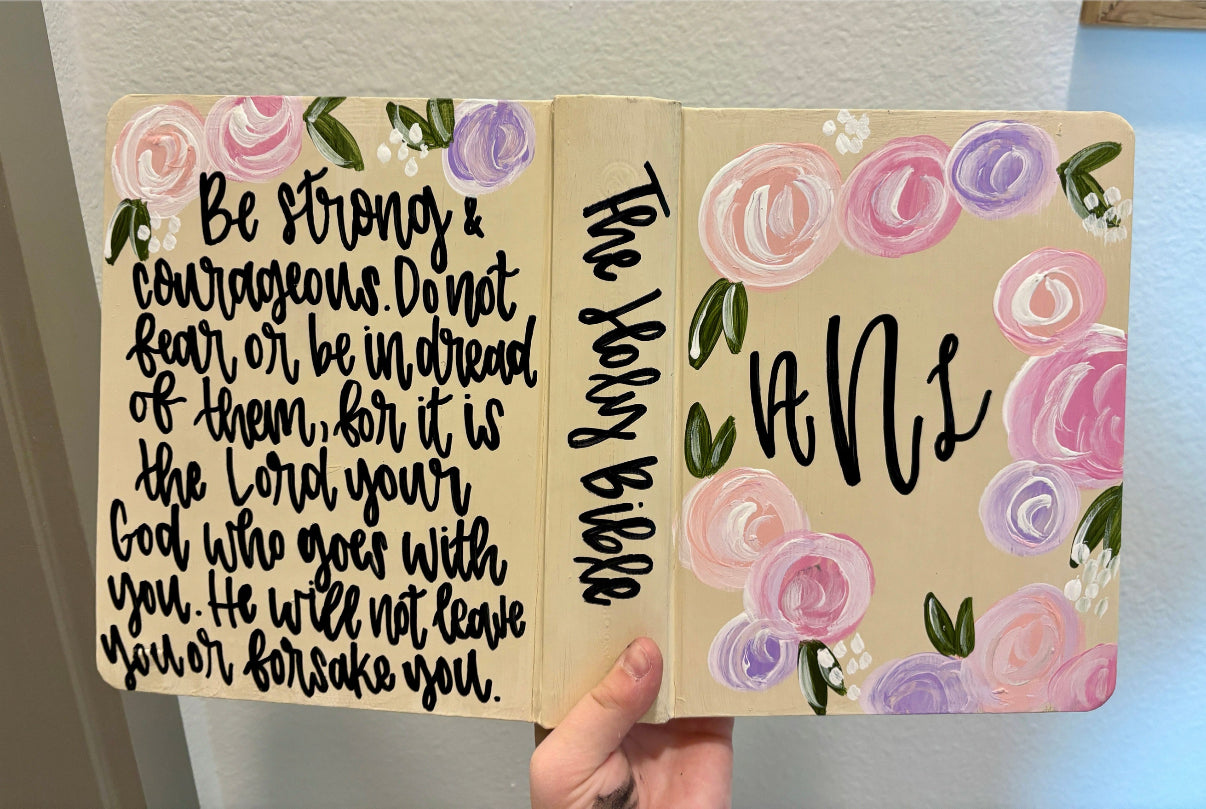 Be strong &
courageous. Do not
fear or be in dread
of them, for it is
the Lord your
God who goes with
you. He will not leave
you or forsake you.
The Holy Bible
ANL